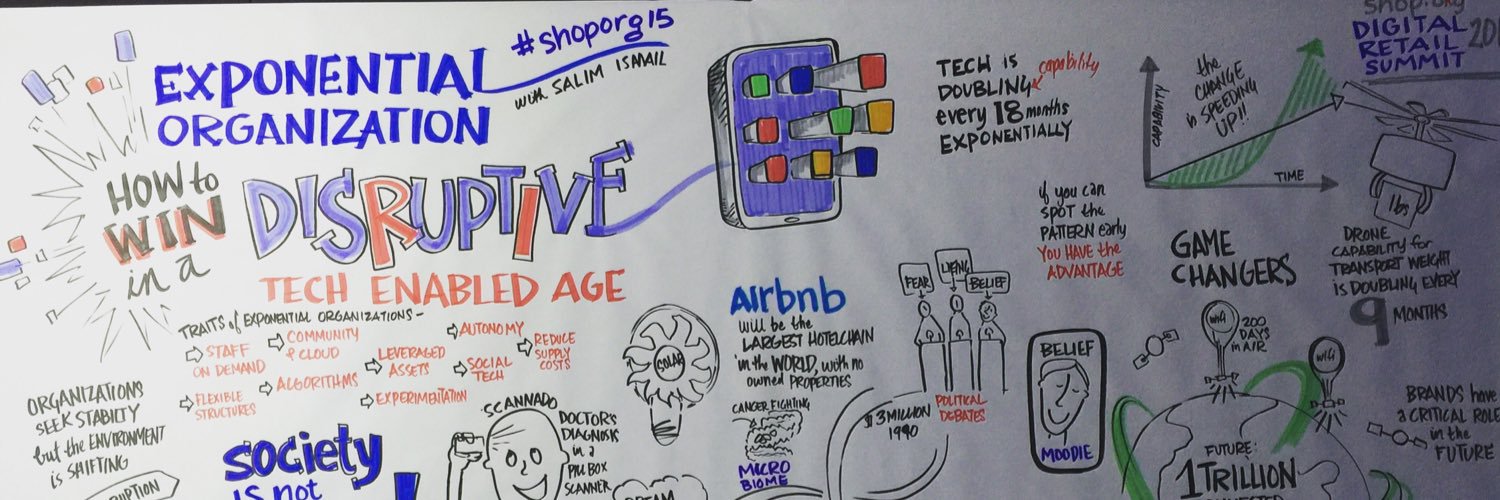 EXPONENTIAL
ORGANIZATION
#shoporg15
with SALIM ISMAIL
HOW to
WIN
in a
DISRUPTIVE
TECH ENABLED AGE
TRAITS of EXPONENTIAL ORGANIZATIONS -
STAFF
ON DEMAND
COMMUNITY
& CLOUD
AUTONOMY
REDUCE
SUPPLY
COSTS
LEVERAGED
ASSETS
SOCIAL
TECH
ALGORITHMS
FLEXIBLE
STRUCTURES
EXPERIMENTATION
ORGANIZATIONS
SEEK STABILTY
but the ENVIRONMENT
is SHIFTING
society
is not
SCANNADO
DOCTOR'S
DIAGNOSIS
in a
PILL BOX
SCANNER
SOLAR
Airbnb
will be the
LARGEST HOTELCHAIN
in the WORLD, with no
owned PROPERTIES
CANCER FIGHTING
MICRO
BIOME
FEAR
LYING
BELIEF
$3 MILLION
1990
POLITICAL
DEBATES
TECH is
DOUBLING capability
every 18 months
EXPONENTIALLY
if you can
SPOT the
PATTERN early
YOU HAVE the
ADVANTAGE
BELIEF
MOODIE
CAPABILITY
the
CHANGE
is SPEEDING
UP!!
TIME
shop.org
DIGITAL
RETAIL
SUMMIT
lbs
GAME
CHANGERS
DRONE
CAPABILITY for
TRANSPORT WEIGHT
is DOUBLING EVERY
9 MONTHS
wifi
200
DAYS
in AIR
wifi
FUTURE:
1 TRILLION
BRANDS have
a CRITICAL ROLE
in the
FUTURE